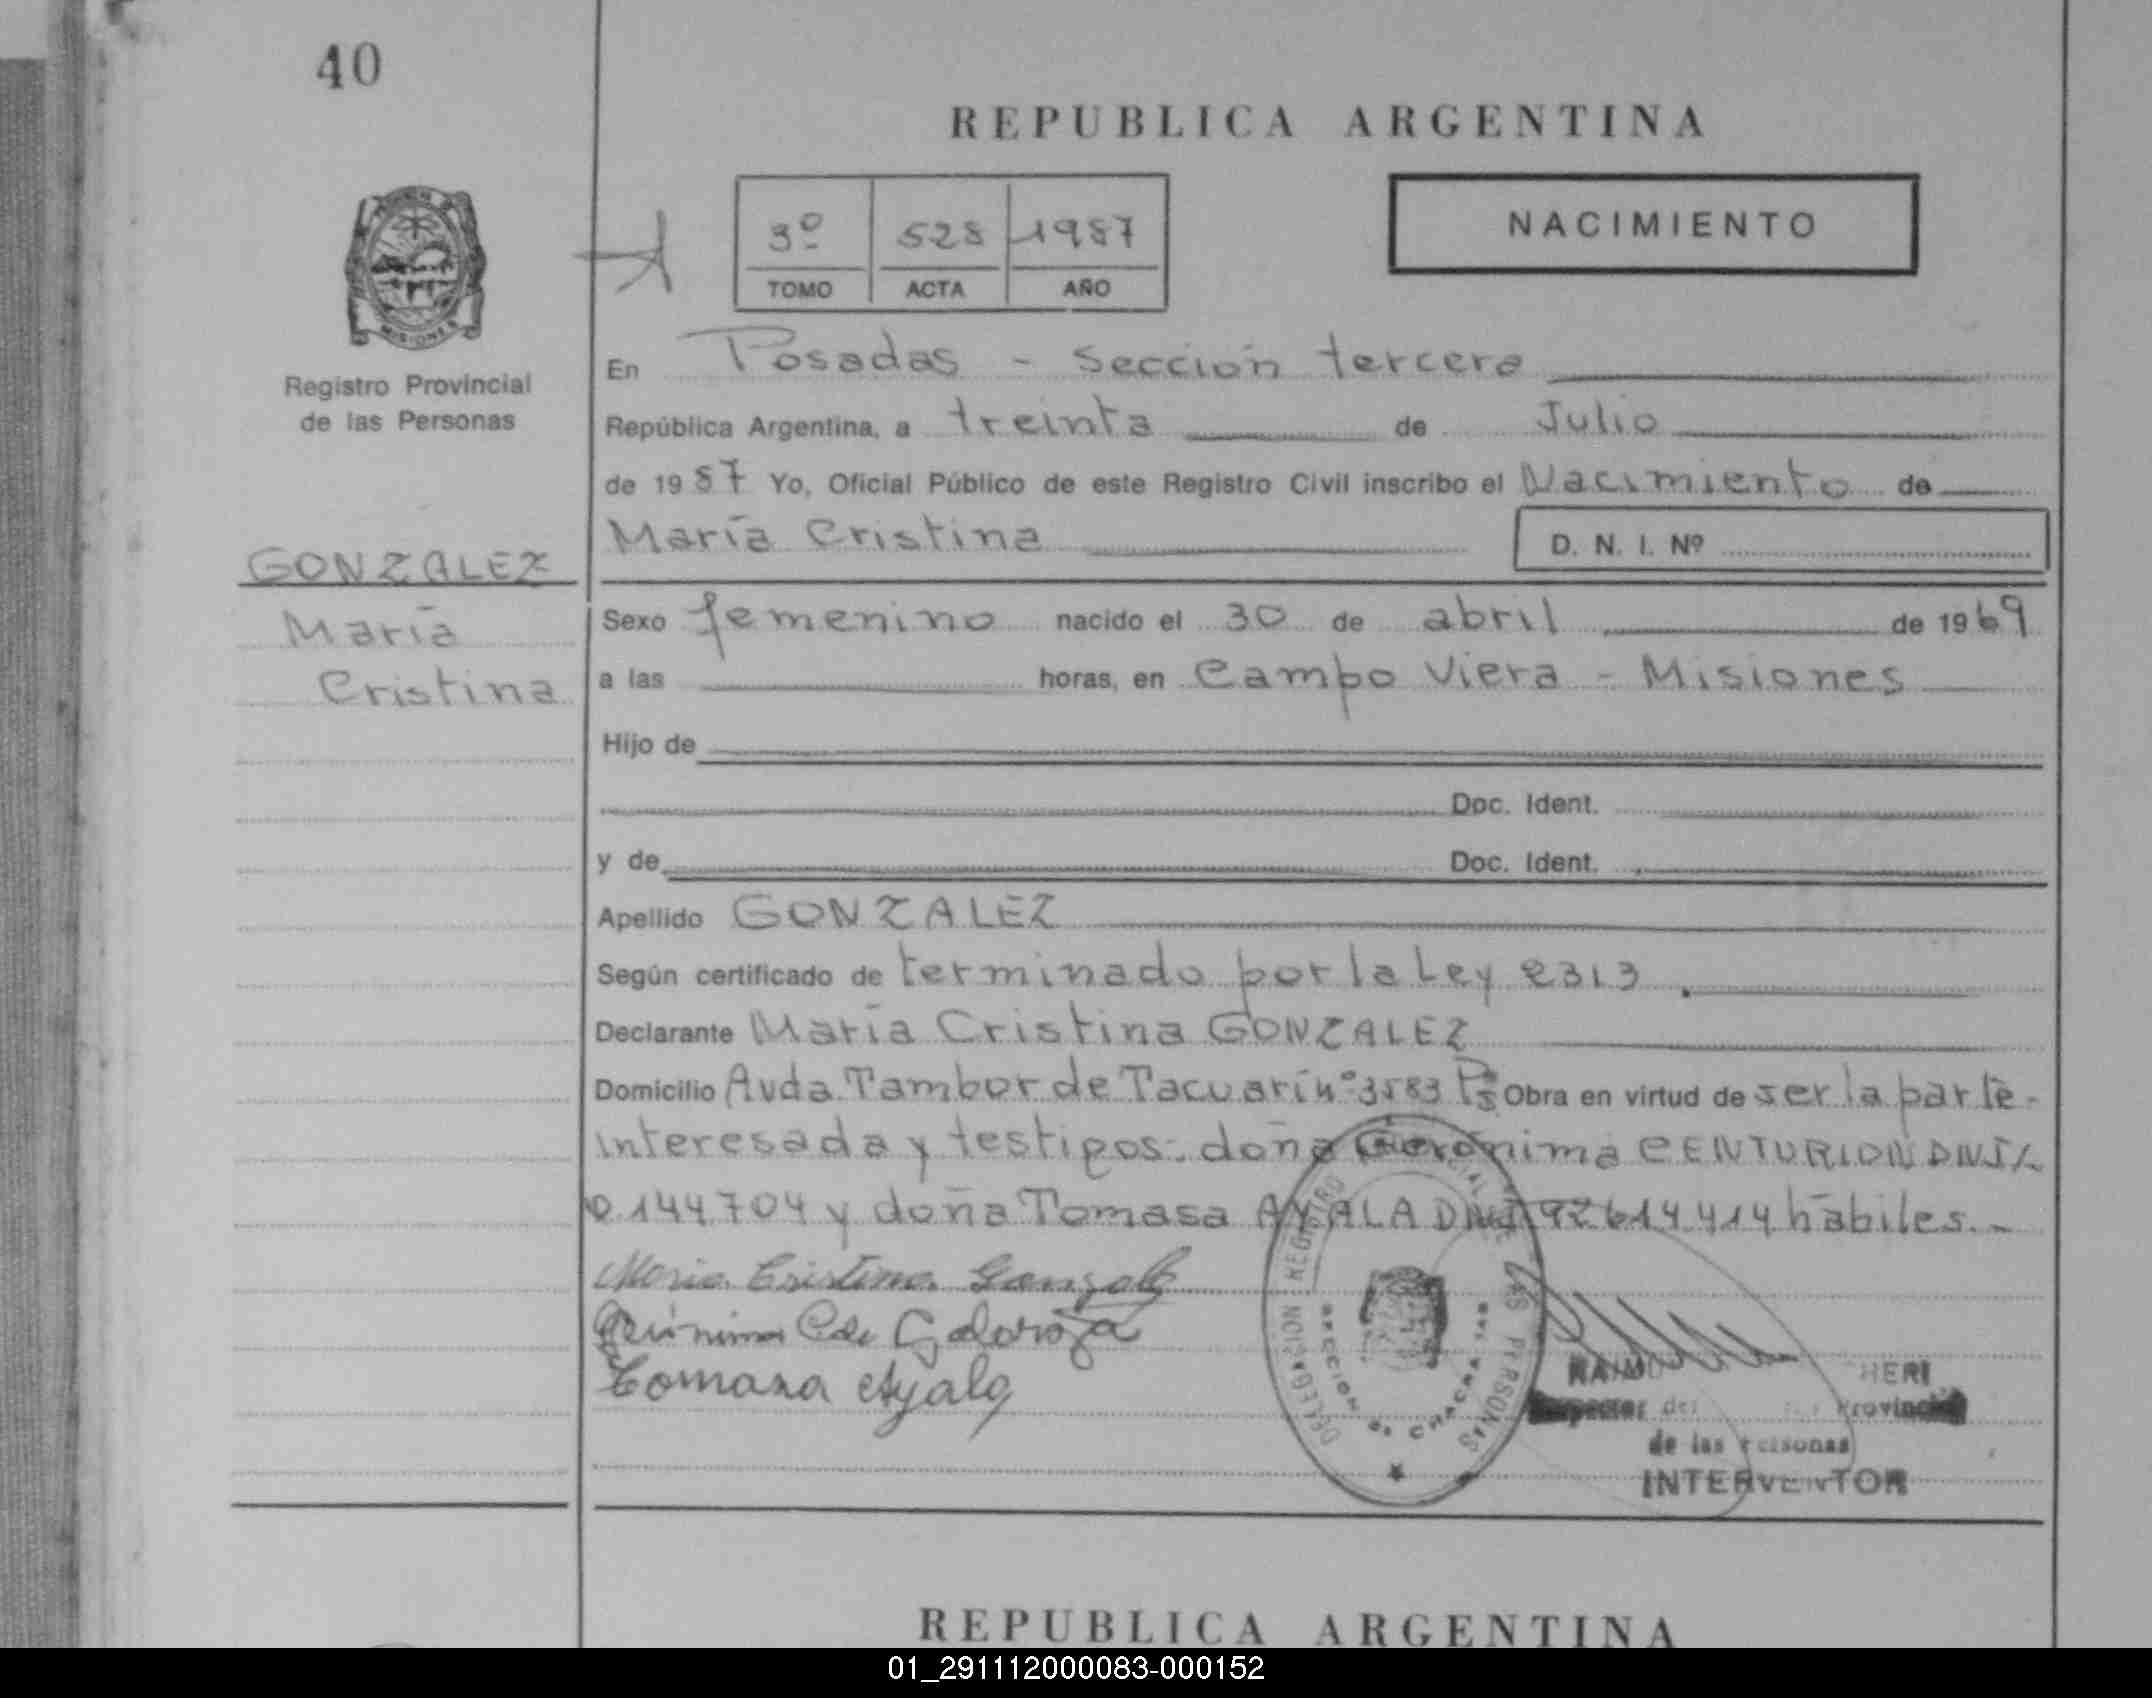 40
REPUBLICA ARGENTINA
3º 528 1987
TOMO ACTA AÑO
NACIMIENTO
MISIONES
Registro Provincial
de las Personas
En Posadas - Sección tercera
República Argentina, a treinta de Julio
de 1987 Yo, Oficial Público de este Registro Civil inscribo el Nacimiento de
María Cristina D. N. I. Nº
GONZALEZ
María
Cristina
Sexo femenino nacido el 30 de abril de 1969
a las horas, en Campo Viera - Misiones
Hijo de
Doc. Ident.
y de Doc. Ident.
Apellido GONZALEZ
Según certificado de terminado por la Ley 2313.
Declarante María Cristina GONZALEZ
Domicilio Avda. Tambor de Tacuarí nº 3583 Ps Obra en virtud de ser la parte-
interesada y testigos: doña Gerónima CENTURION DNI
144704 y doña Tomasa AYALA DNI 92614414 hábiles.-
Maria Cristina Gonzalez
Gerónima C de Galarza
Tomasa Ayala
DELEGACION REGISTRO DE LAS PERSONAS
SECCION 3a CHACRA
HERI
Provincial
de las Personas
INTERVENTOR
REPUBLICA ARGENTINA
01_291112000083-000152